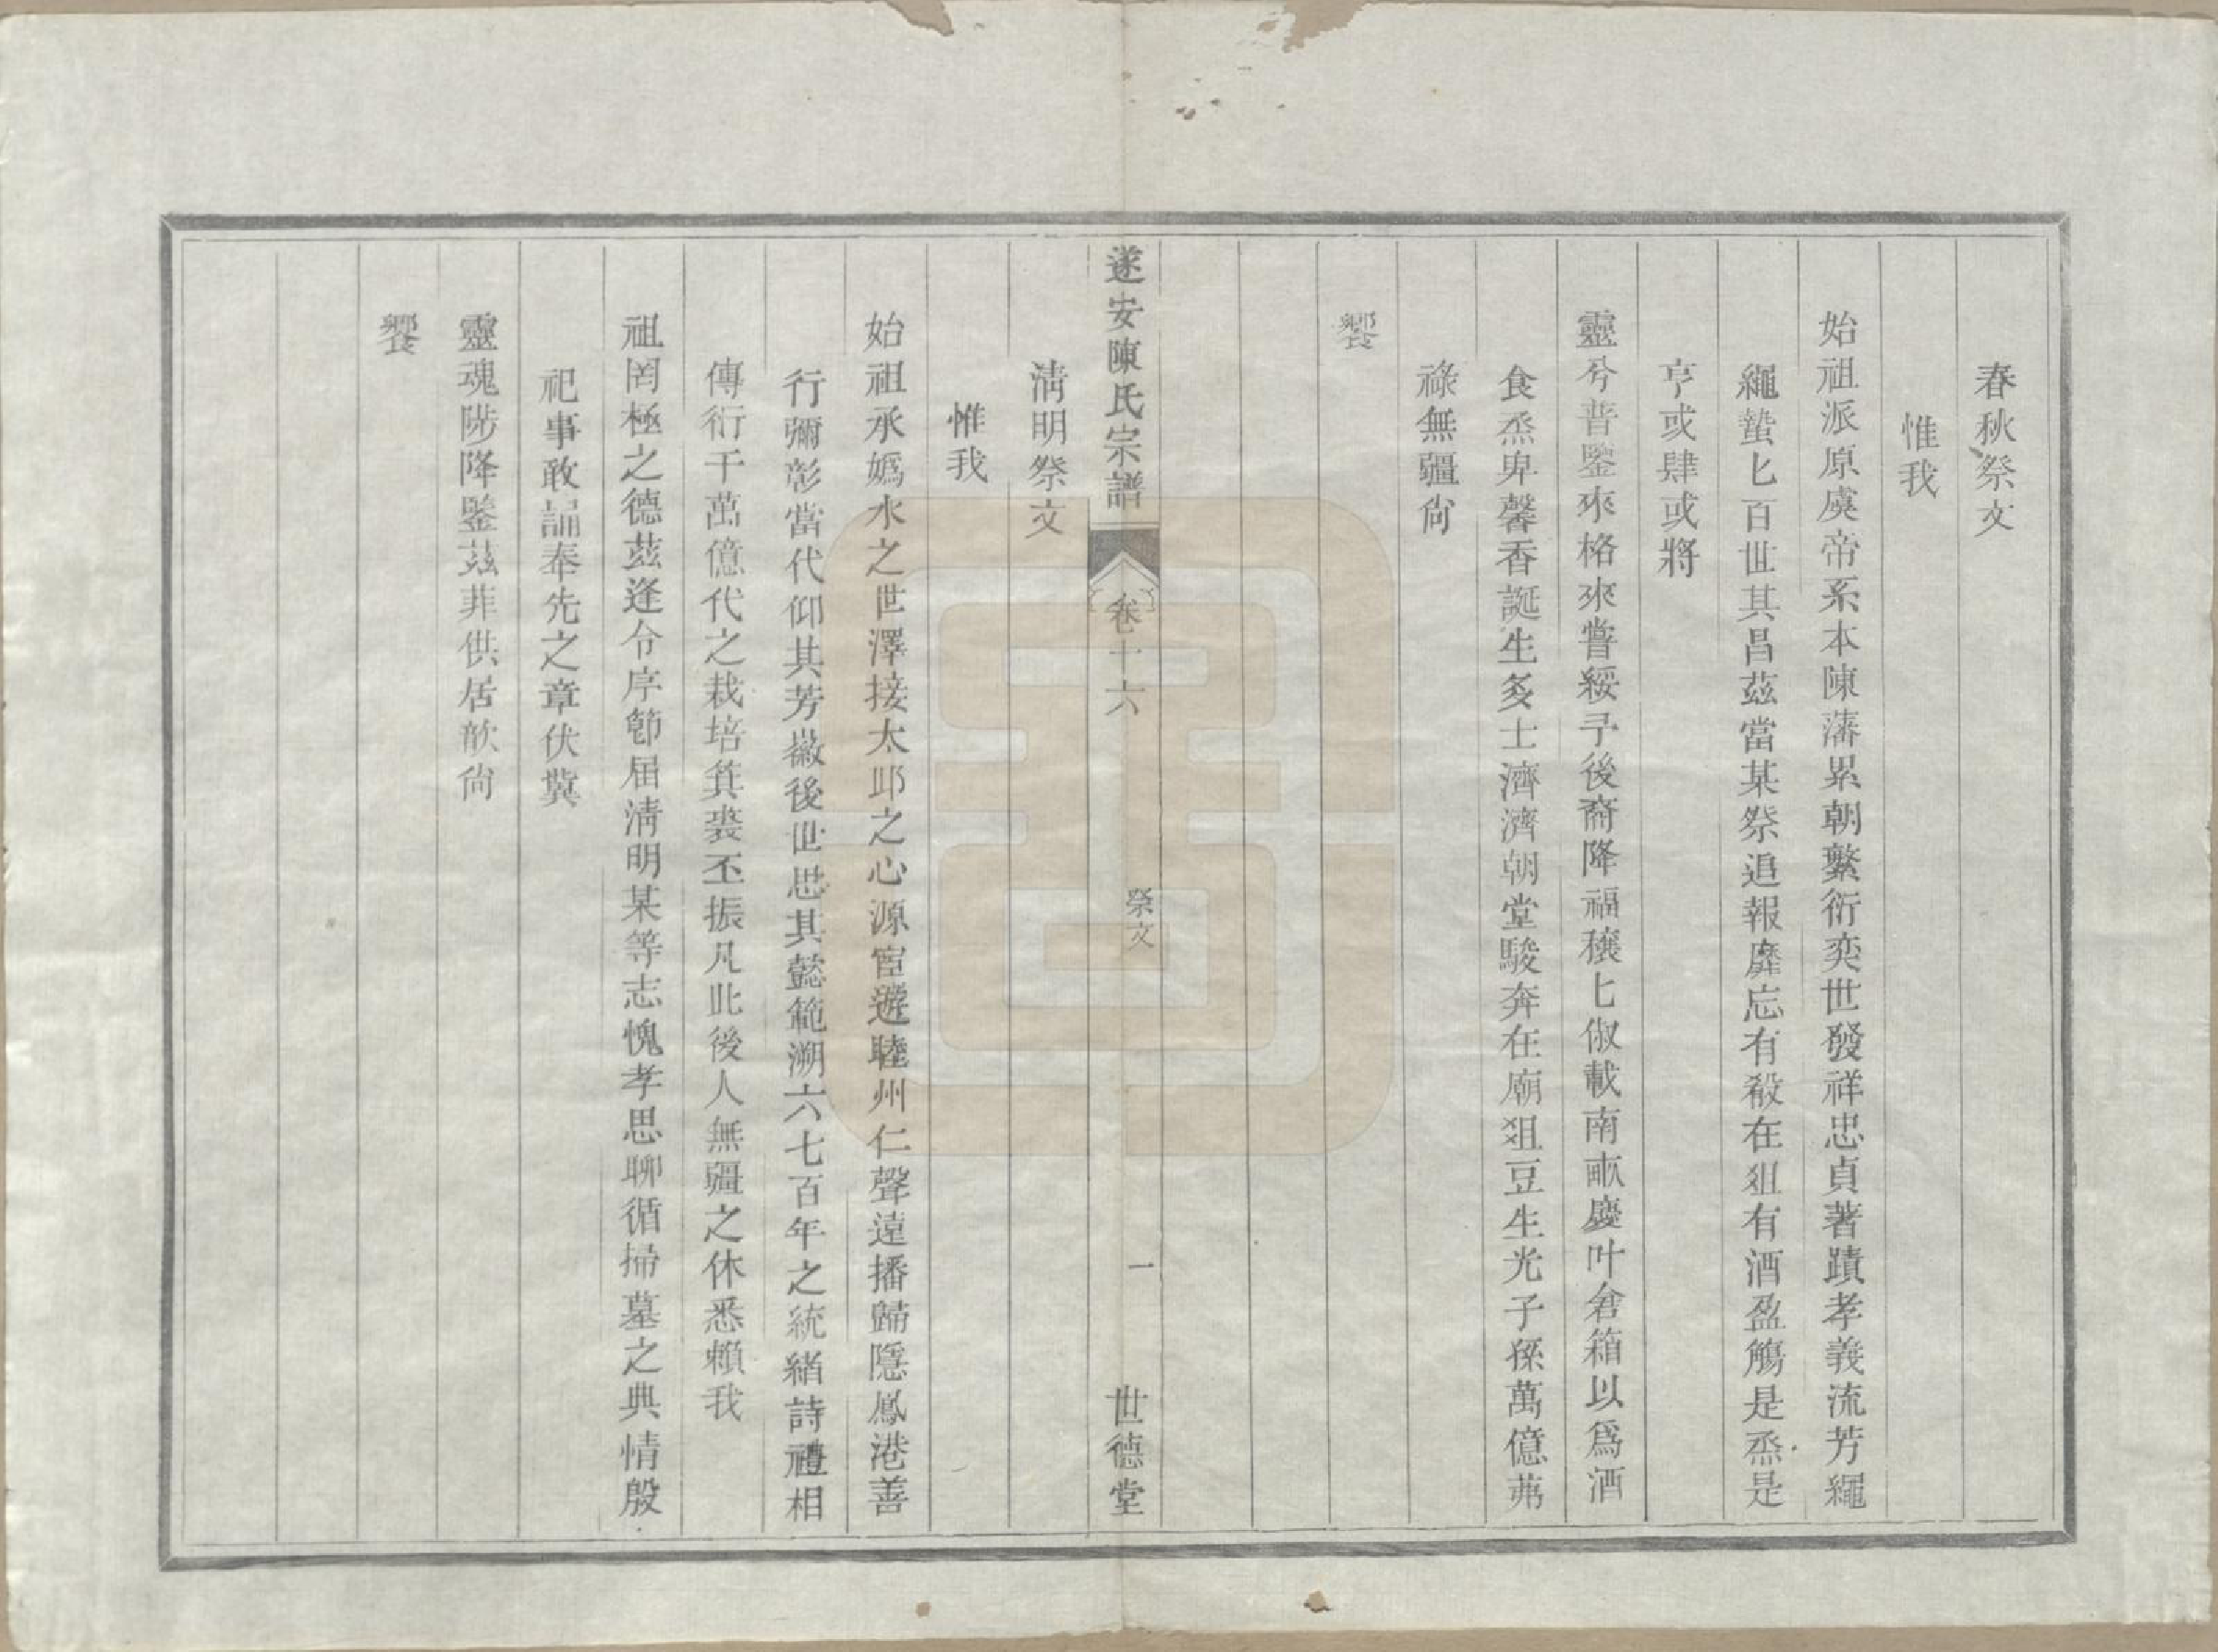 春秋祭文
惟我
始祖派原虞帝系本陳藩累朝繁衍奕世發祥忠貞著蹟孝義流芳繩
繩蟄匕百世其昌茲當某祭追報靡忘有殽在俎有酒盈觴是烝是
亨或肆或將
靈兮普鑒來格來嘗綏予後裔降福穰匕俶載南畝慶叶倉箱以爲酒
食烝卑馨香誕生多士濟濟朝堂駿奔在廟俎豆生光子孫萬億茀
祿無疆尙
饗
遂安陳氏宗譜
卷十六
祭文
一
世德堂
淸明祭文
惟我
始祖承媯水之世澤接太邱之心源宦遊睦州仁聲遠播歸隱鳳港善
行彌彰當代仰其芳徽後世思其懿範溯六七百年之統緒詩禮相
傳衍千萬億代之栽培箕裘丕振凡此後人無疆之休悉賴我
祖罔極之德茲逢令序節届淸明某等志愧孝思聊循掃墓之典情殷
祀事敢誦奉先之章伏冀
靈魂陟降鑒茲菲供居歆尙
饗